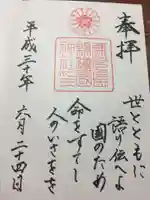 奉拝
世とともに
語り伝へよ
國のため
命をすてし
人のいさをを
平成三十年
六月二十四日